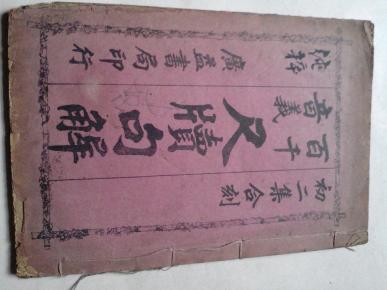 初二集合刻
百千音義
尺牘句解
廣益書局印行